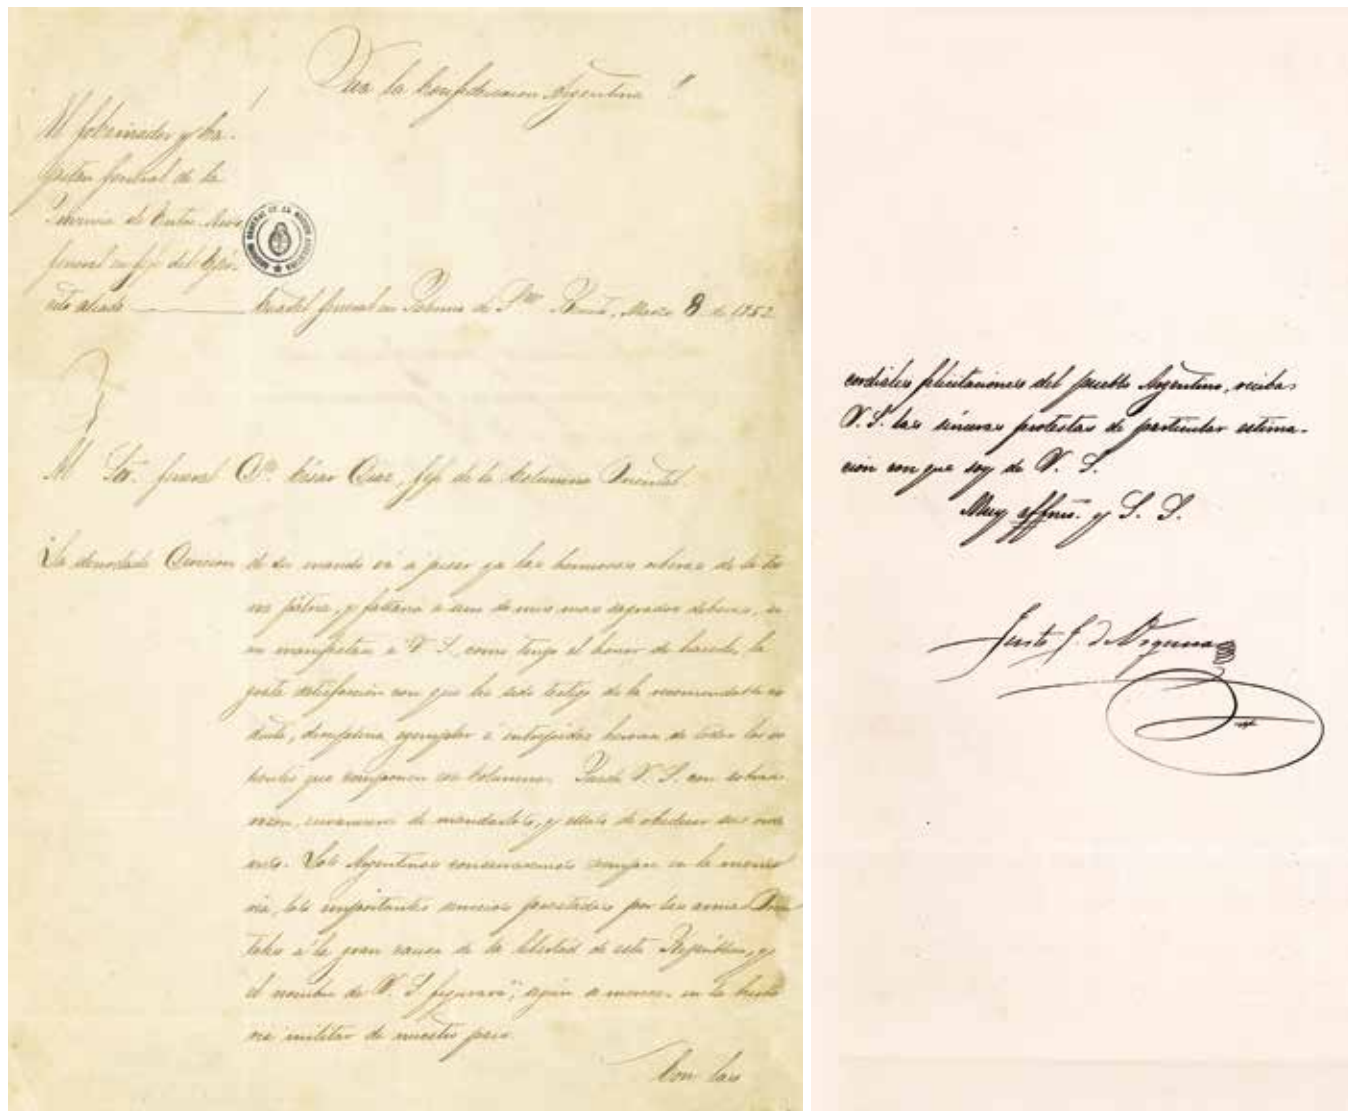 ¡Viva la Confederacion Argentina!
El Gobernador y Ca-
pitan General de la
Provincia de Entre-Rios
General en Jefe del Ejér-
cito aliado
Cuartel General en Palermo de Sn. Benito, Marzo 8 de 1852
Al Sor. General Dn. César Diaz, Jefe de la Columna Oriental.
La denodada Division de su mando vá á pisar ya las hermosas riberas de la
patria, y faltaria á uno de mis mas sagrados deberes, si
no manifestara á V. S., como tengo el honor de hacerlo, la
grata satisfaccion con que he sido testigo de la recomendable
disciplina ejemplar é intrepidez de todos los
que componen esa Columna. Puede V. S. con sobrada
razon, envanecerse de mandarlos, y ellos de obedecer sus
Los Argentinos conservaremos siempre en la memo
ria, los importantes servicios prestados por las armas Orien
tales á la gran causa de la libertad de esta República, y
el nombre de V. S. figurará, segun se merece, en la histo
ria militar de nuestro pais.
Con las
cordiales felicitaciones del pueblo Argentino, reciba
V. S. las sinceras protestas de particular estima-
cion con que soy de V. S.
Muy affmo. y S. S.
Justo J. de Urquiza
ARCHIVO GENERAL DE LA NACION ARGENTINA